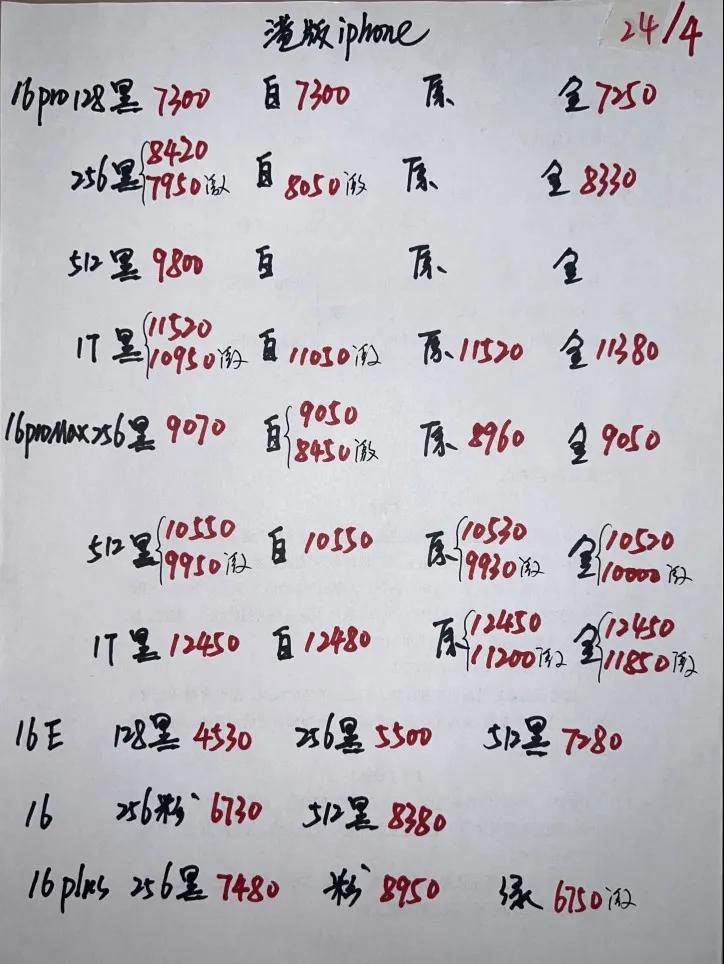 港版iphone 24/4
16pro128黑 7300 白 7300 原 金 7250
256黑 8420 7950激 白 8050激 原 金 8330
512黑 9800 白 原 金
1T 黑 11520 10950激 白 11050激 原 11520 金 11380
16proMax256黑 9070 白 9050 8450激 原 8960 金 9050
512黑 10550 9950激 白 10550 原 10530 9930激 金 10520 10000激
1T 黑 12450 白 12480 原 12450 11200激 金 12450 11850激
16E 128黑 4530 256黑 5500 512黑 7280
16 256粉 6730 512黑 8380
16plus 256黑 7480 粉 8950 绿 6750激